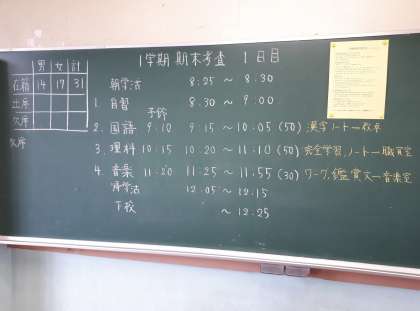 1学期 期末考査 1日目
男 女 計
在籍 14 17 31
出席
欠席
欠席
朝学活 8:25 ～ 8:30
1. 自習 8:30 ～ 9:00
予鈴
2. 国語 9:10 9:15 ～ 10:05 (50) 漢字ノート→教卓
3. 理科 10:15 10:20 ～ 11:10 (50) 完全学習、ノート→職員室
4 音楽 11:20 11:25 ～ 11:55 (30) ワーク、鑑賞文→音楽室
帰学活 12:05 ～ 12:15
下校 ～ 12:25